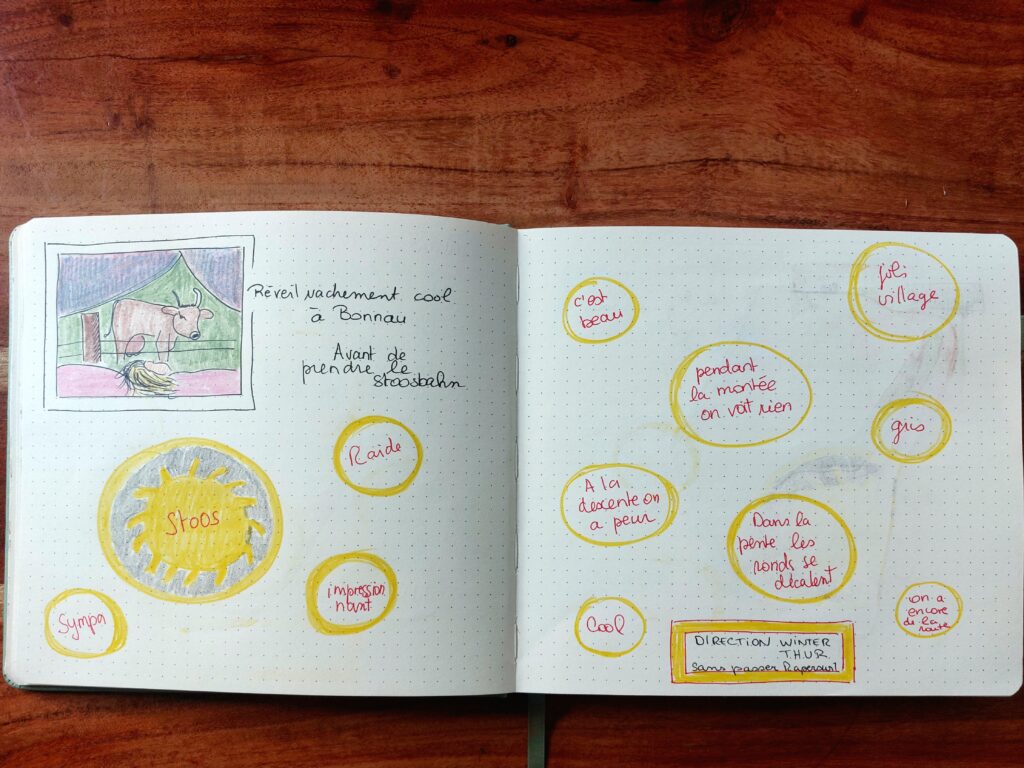 Réveil vachement cool
à Bonnau
Avant de
prendre le
stoosbahn
Raide
Stoos
impression
nant
Sympa
c'est
beau
joli
village
pendant
la montée
on voit rien
gris
A la
descente on
a peur
Dans la
pente les
ronds se
décalent
Cool
on a
encore
de la
route
DIRECTION WINTER
THUR
Sans passer Rapersvil